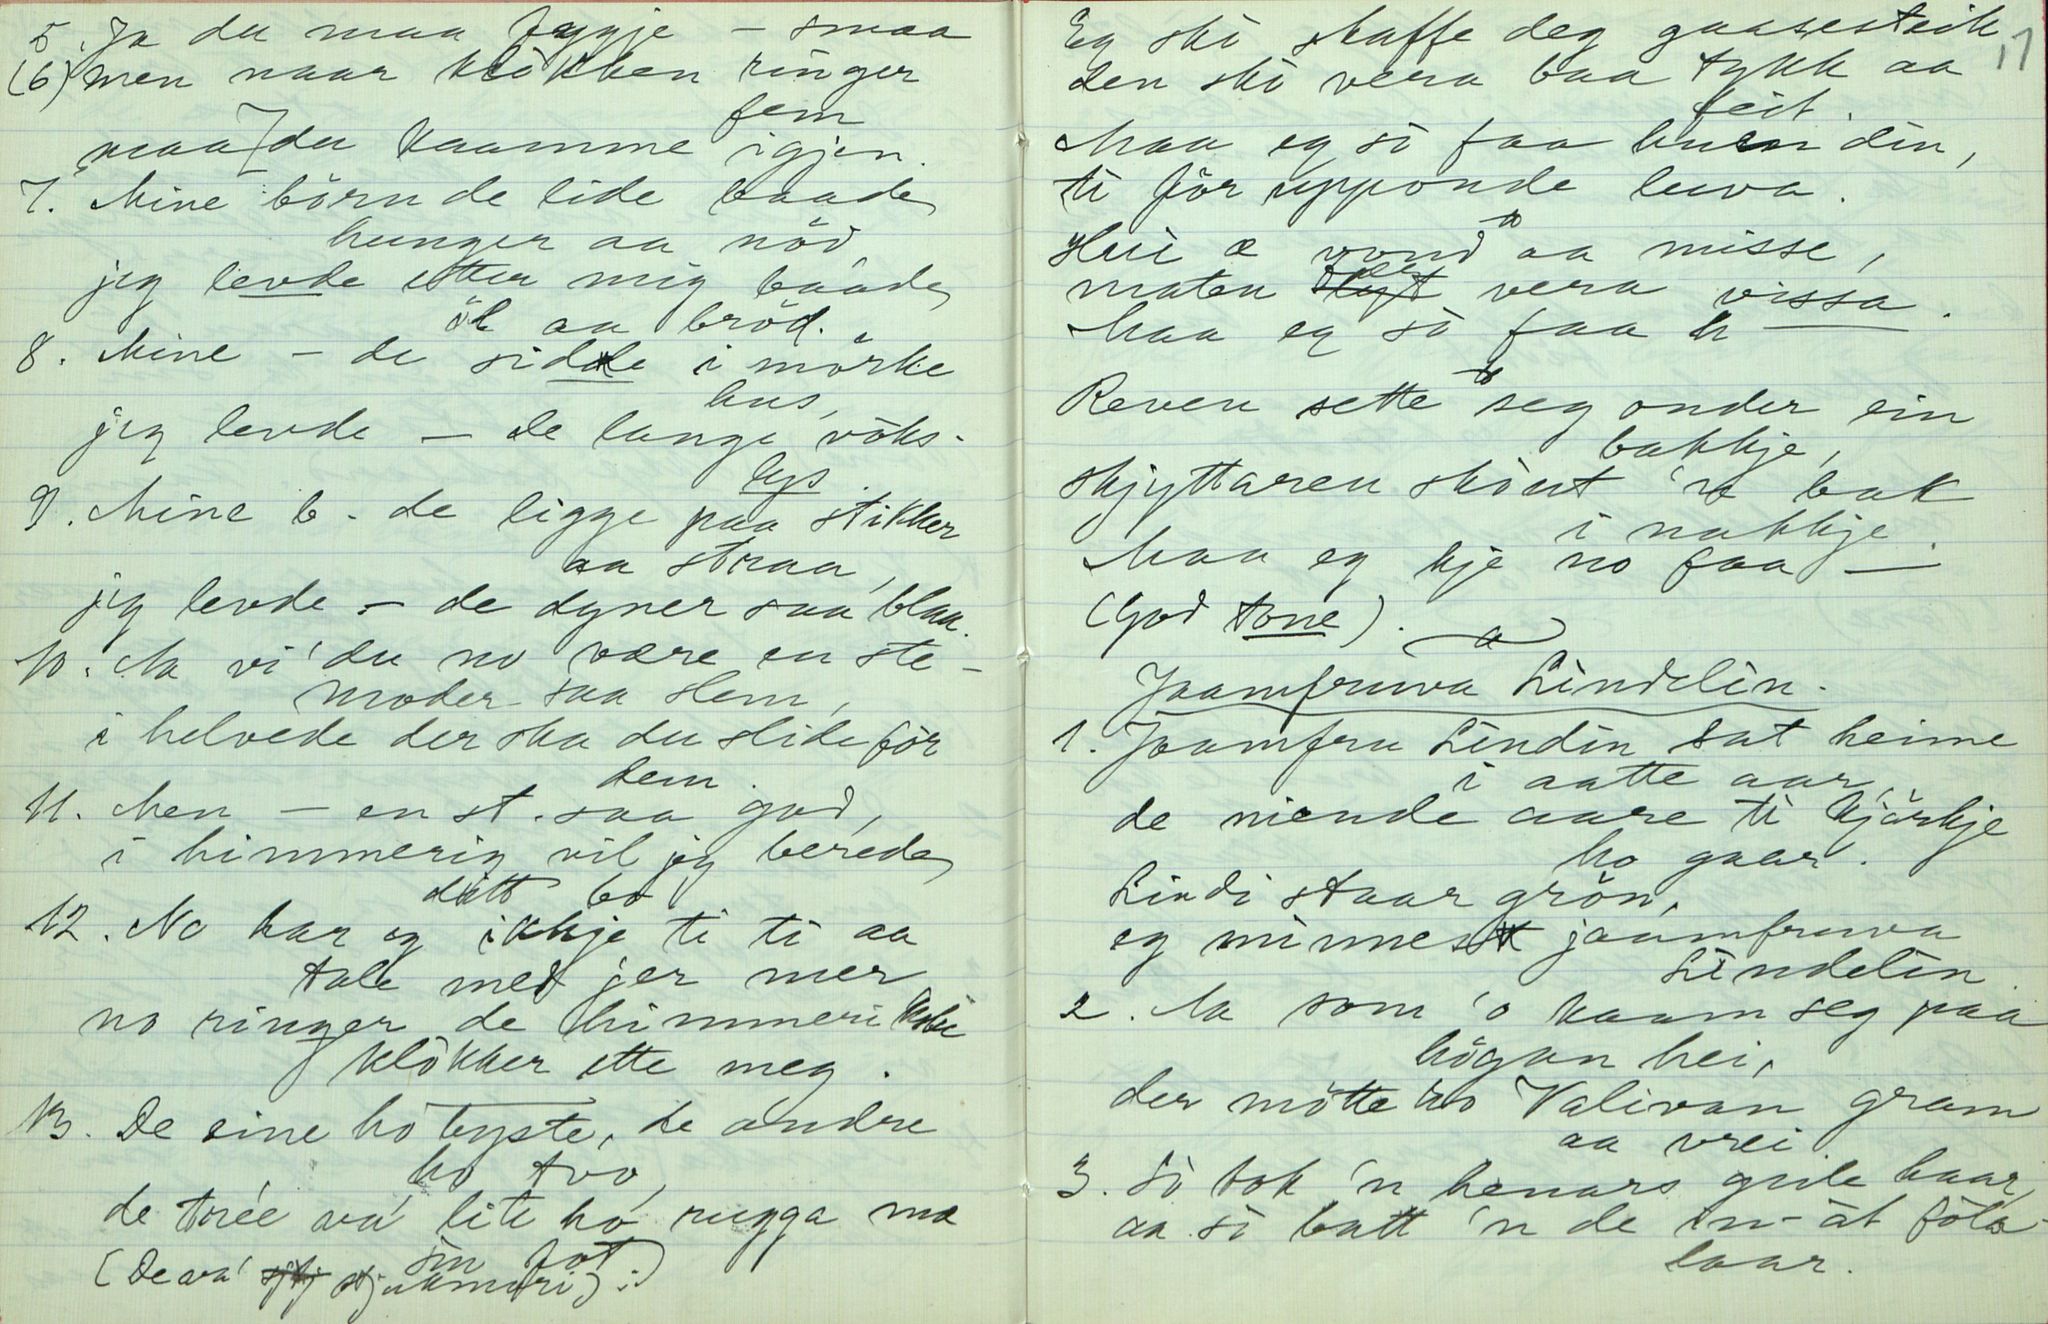 5. Ja du maa fyggje – smaa
(6) men naar klòkken ringer
fem
maa du kaamme igjen.
7. Mine börn de lide baade
hunger aa nöd,
jeg levde etter mig baade
öl aa bröd.
8. Mine – de sidde i mörke
hus,
jeg levde – de lange vòks-
lys.
9. Mine b. de ligge paa stikker
aa straa,
jeg levde – de dyner saa blaa.
10. Aa vi' du no være en ste-
moder saa slem,
i helvede der ska du slide for
dem.
11. Men – en st. saa god,
i himmerig vil jeg berede
ditt bo
12. No har eg ikkje ti ti aa
tale med jer mer
no ringer de himmerikske
klòkker ette meg.
13. De eine ho byste, de andre
ho tvo,
de trée va' lite ho rugga mæ
sin fot
(De va' stjukmori) :)
17
Eg ski skaffe deg gaasesteik
den ski vera baa tykk aa
feit.
Maa eg si faa huen din,
ti för upponde luva.
Hui æ vond aa misse,
maten vera vissa.
Maa eg si faa h —
Reven sette seg onder ein
bakkje,
skjyttaren skòut 'n bak
i nakkje.
Maa eg kje no faa —
(God tone).
Jaamfruva Lindelin.
1. Jaamfru Lindin sat heime
i aatte aar,
de niende aare ti kjörkje
ho gaar.
Lindi staar grön,
eg minnest jaamfruva
Lindelin
2. Aa som 'o kaam seg paa
högan hei,
der mötte ho Valivan gram
aa vrei
3. Si tok 'n hennars gule haar,
aa si batt 'n de in-åt fòla-
laar.